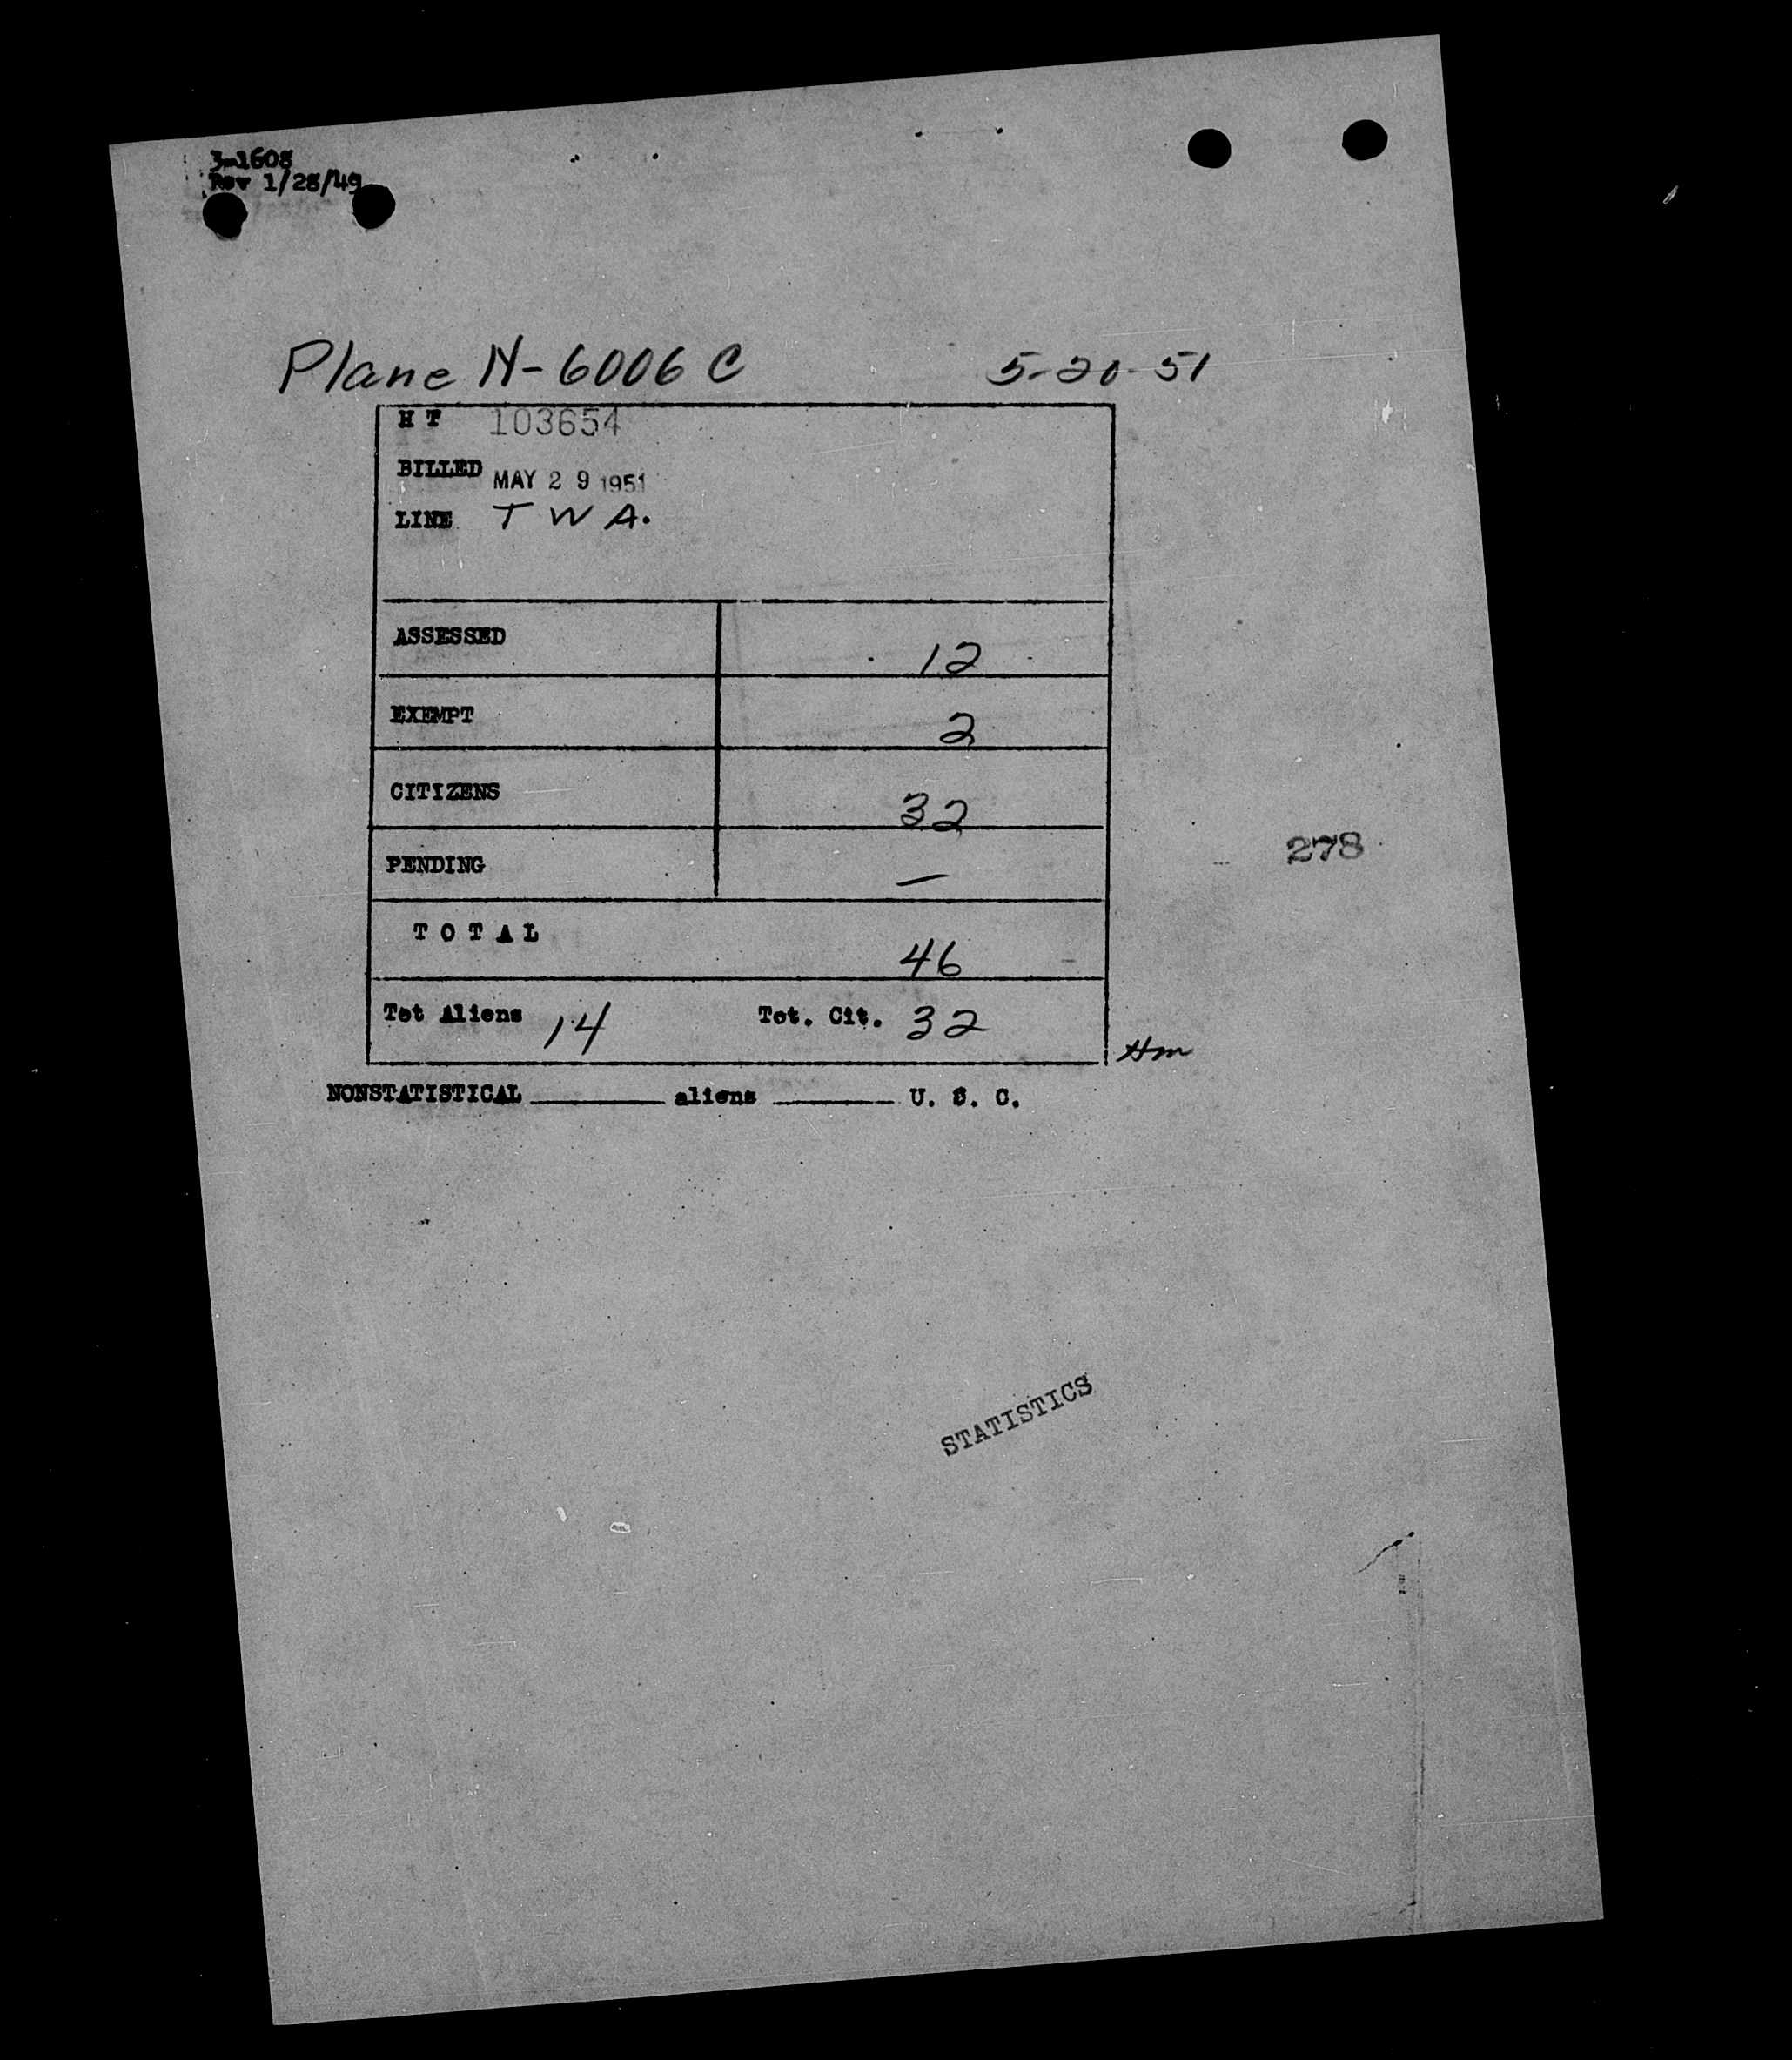 3-1608
Rev 1/28/49
Plane N-6006 C 5-20-51
H T 103654
BILLED MAY 29 1951
LINE T W A.
ASSESSED 12
EXEMPT 2
CITIZENS 32
PENDING —
278
T O T A L 46
Tot Aliens 14 Tot. Cit. 32
Hm
NONSTATISTICAL ______ aliens ______ U. S. C.
STATISTICS